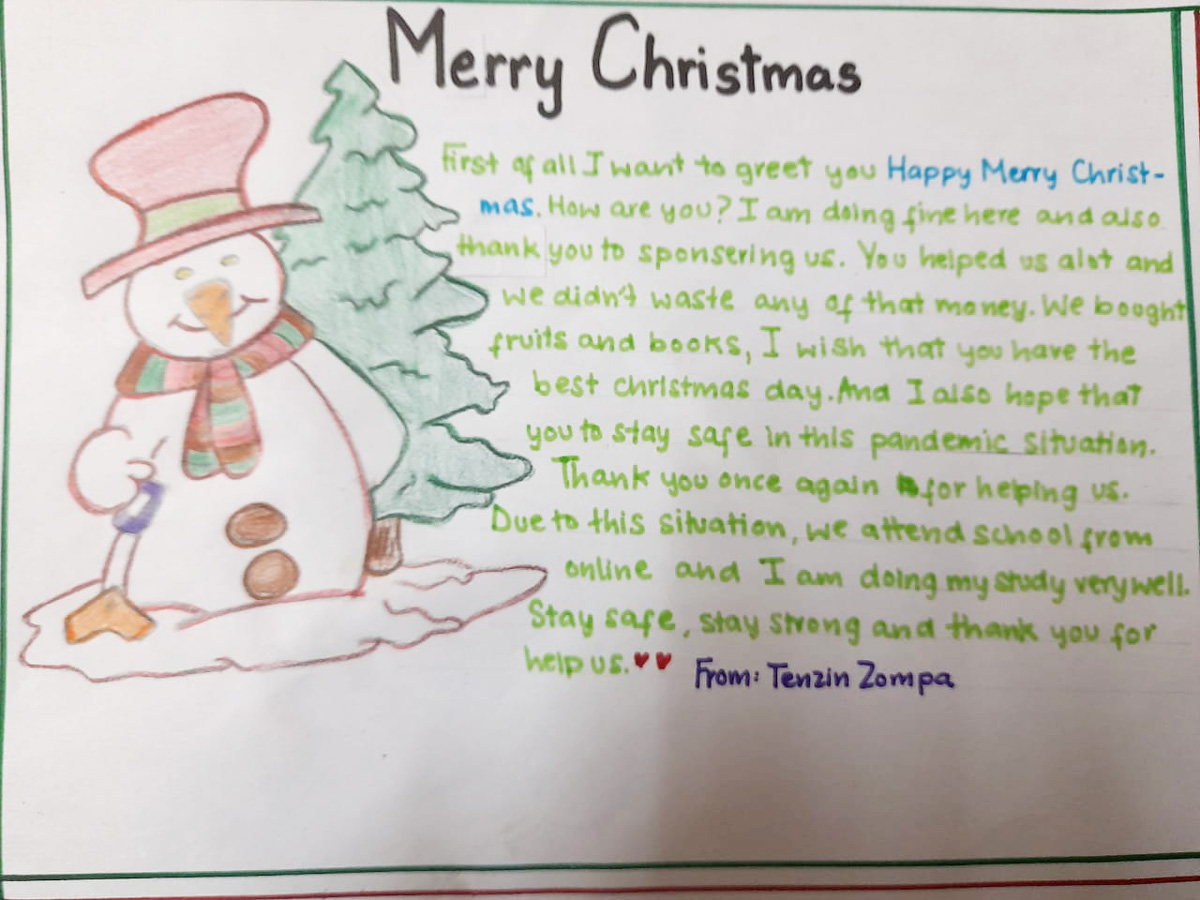 Merry Christmas
First of all I want to greet you Happy Merry Christ-
mas. How are you? I am doing fine here and also
thank you to sponsering us. You helped us alot and
we didn't waste any of that money. We bought
fruits and books, I wish that you have the
best christmas day. And I also hope that
you to stay safe in this pandemic situation.
Thank you once again for helping us.
Due to this situation, we attend school from
online and I am doing my study very well.
Stay safe, stay strong and thank you for
help us.♥♥ From: Tenzin Zompa